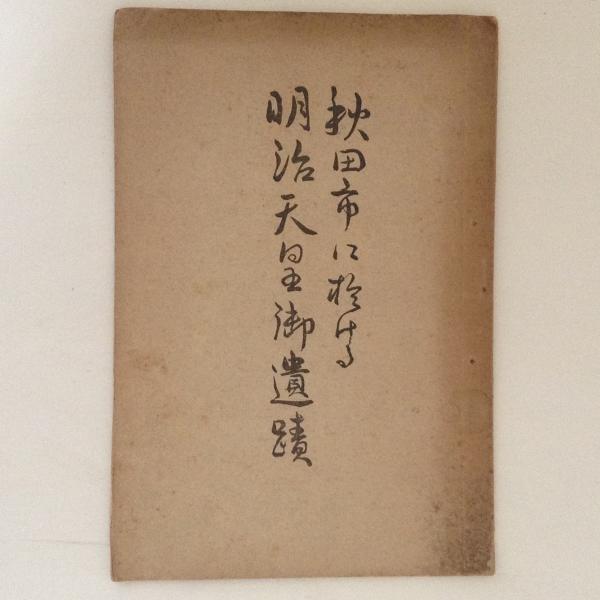 秋田市に於ける
明治天皇御遺蹟